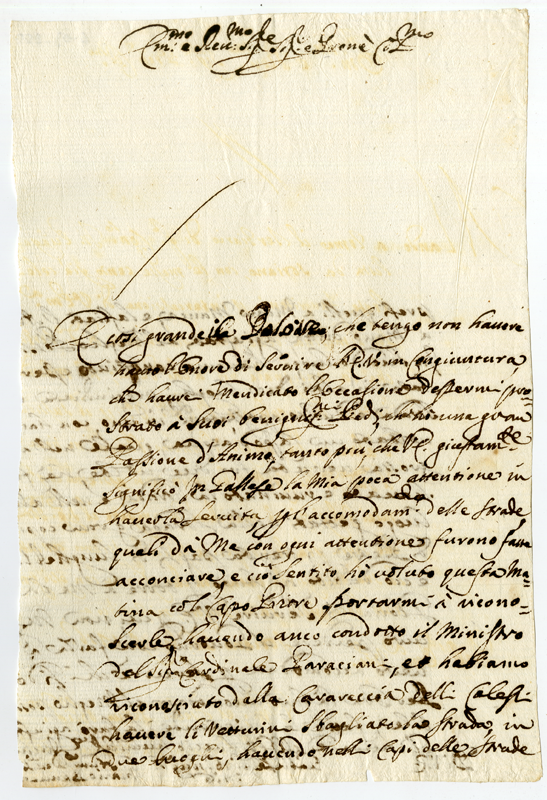 Em.mo e Rev.mo Sig.re Sig.re e Prone Co.mo
È cosi grande il Dolore, che tengo non havere
havuto l'honore di Servire V.E. in congiuntura,
che havrei Mendicato l'occasione d'essermi pro=
strato à Suoi benigni Piedi, che
Passione d'Animo, tanto più, che V.E. giustam.te
significò in Gallese la Mia poca attentione in
haverla servita, p l'accomodam.to delle strade,
queli dà Me, con ogni attentione furono fatte
acconciare, e ciò sentito, hò voluto questa Ma=
tina col Capo Priore portarmi à ricono=
scerle, havendo anco condotto il Ministro
del Sig.r Cardinale Paracciani, et habiamo
riconosciuto dalla Carareccia delli Calessi
havere li Vetturini Sbagliato la strada, in
due luoghi, havendo nelli Capi delle strade